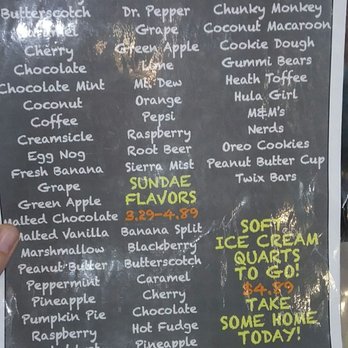 Butterscotch
Caramel
Cherry
Chocolate
Chocolate Mint
Coconut
Coffee
Creamsicle
Egg Nog
Fresh Banana
Grape
Green Apple
Malted Chocolate
Malted Vanilla
Marshmallow
Peanut Butter
Peppermint
Pineapple
Pumpkin Pie
Raspberry
Dr. Pepper
Grape
Green Apple
Lime
Mt. Dew
Orange
Pepsi
Raspberry
Root Beer
Sierra Mist
SUNDAE
FLAVORS
3.29-4.89
Banana Split
Blackberry
Butterscotch
Caramel
Cherry
Chocolate
Hot Fudge
Pineapple
Chunky Monkey
Coconut Macaroon
Cookie Dough
Gummi Bears
Heath Toffee
Hula Girl
M&M's
Nerds
Oreo Cookies
Peanut Butter Cup
Twix Bars
SOFT
ICE CREAM
QUARTS
TO GO!
$4.89
TAKE
SOME HOME
TODAY!